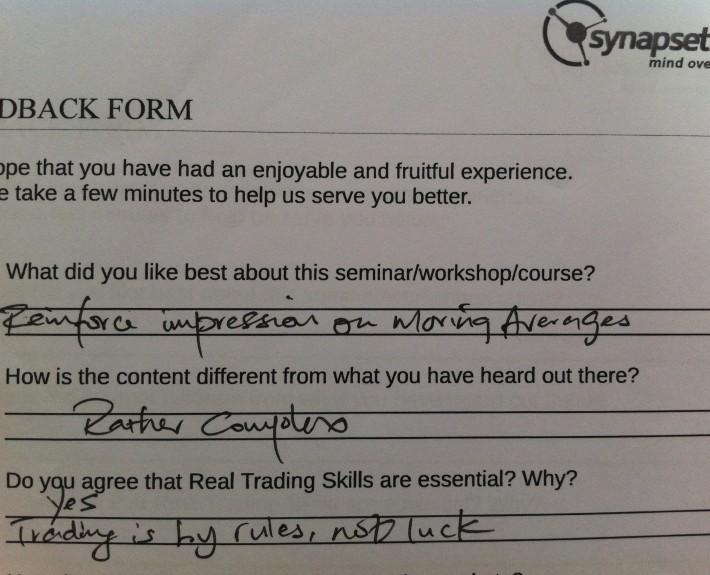 synapset
mind ove
DBACK FORM
ope that you have had an enjoyable and fruitful experience.
e take a few minutes to help us serve you better.
What did you like best about this seminar/workshop/course?
Reinforce impression on Moving Averages
How is the content different from what you have heard out there?
Rather Complex
Do you agree that Real Trading Skills are essential? Why?
Yes
Trading is by rules, not luck